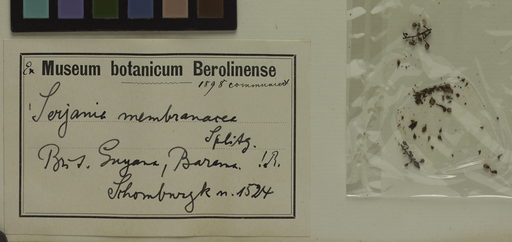 Ex Museum botanicum Berolinense
1898 communicat
Serjania membranacea
Splitg.
Brit. Guyana, Barama. !R.
Schomburgk n. 1524